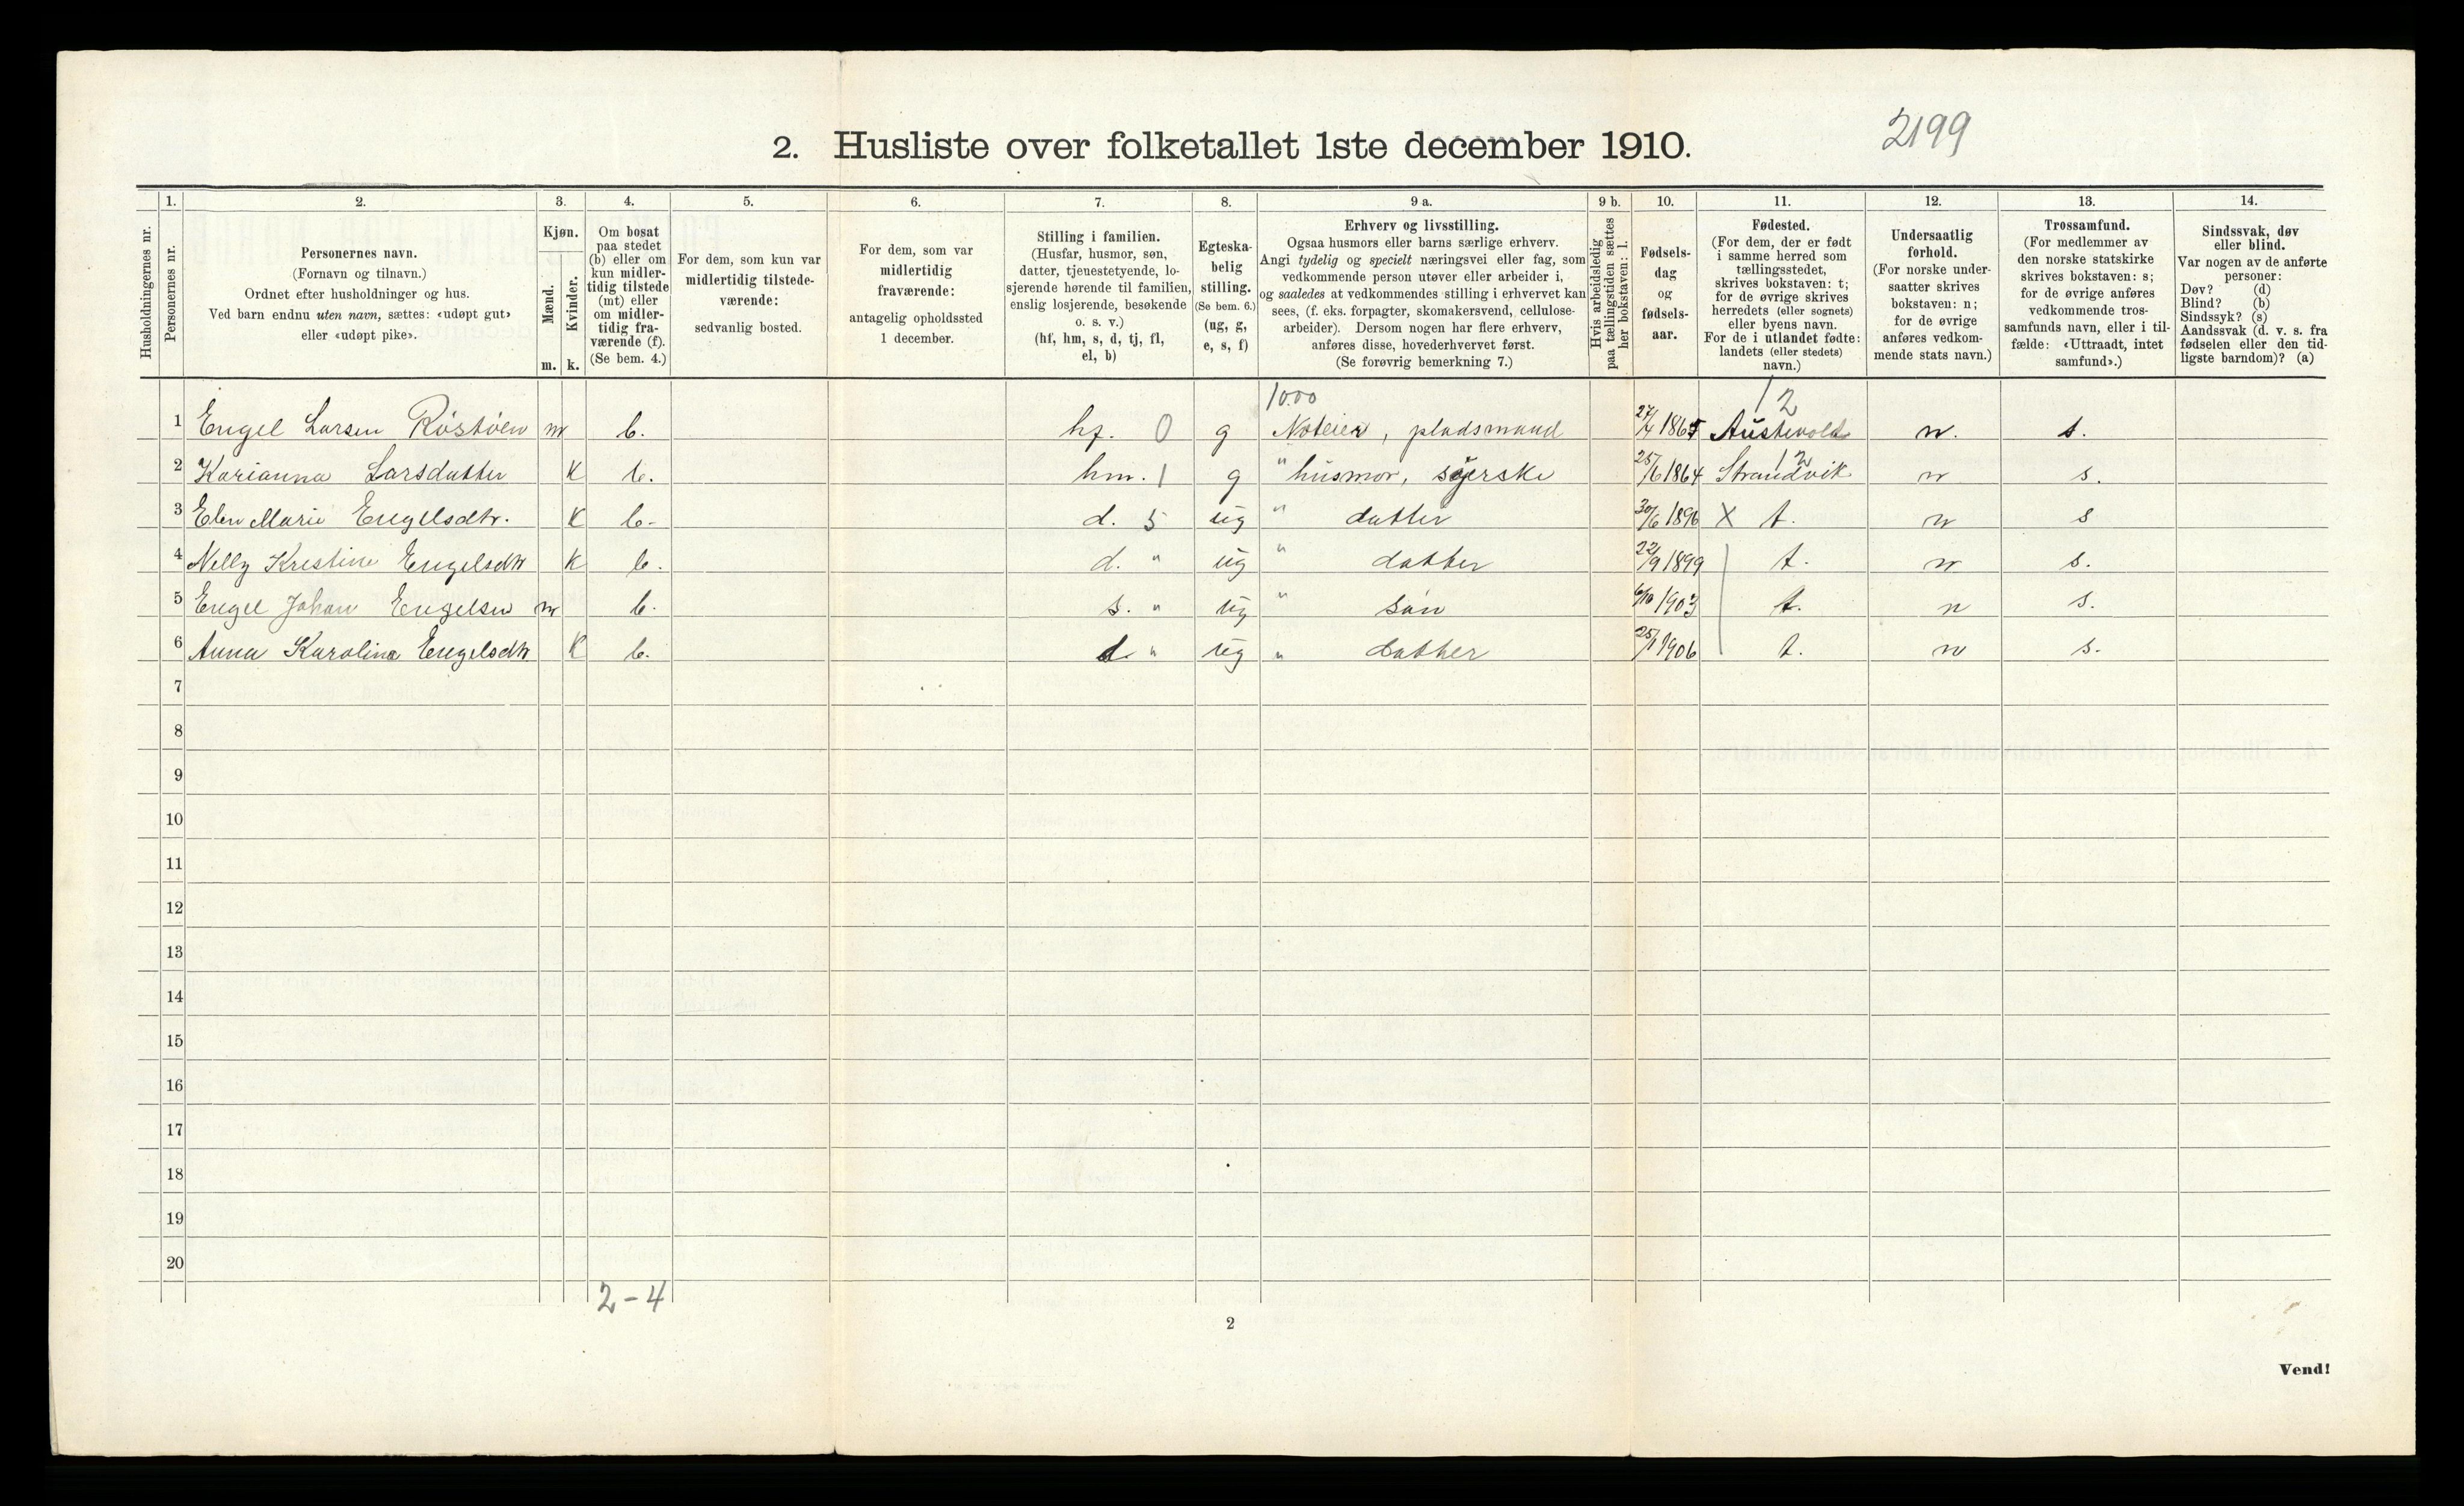 2199
2. Husliste over folketallet 1ste december 1910.
Husholdningernes nr.
1.
Personernes nr.
2.
Personernes navn.
(Fornavn og tilnavn.)
Ordnet efter husholdninger og hus.
Ved barn endnu uten navn, sættes: «udøpt gut»
eller «udøpt pike».
3.
Kjøn.
Mænd.
m.
Kvinder.
k.
4.
Om bosat
paa stedet
(b) eller om
kun midler-
tidig tilstede
(mt) eller
om midler-
tidig fra-
værende (f).
(Se bem. 4.)
5.
For dem, som kun var
midlertidig tilstede-
værende:
sedvanlig bosted.
6.
For dem, som var
midlertidig
fraværende:
antagelig opholdssted
1 december.
7.
Stilling i familien.
(Husfar, husmor, søn,
datter, tjenestetyende, lo-
sjerende hørende til familien,
enslig losjerende, besøkende
o. s. v.)
(hf, hm, s, d, tj, fl,
el, b)
8.
Egteska-
belig
stilling.
(Se bem. 6.)
(ug, g,
e, s, f)
9 a.
Erhverv og livsstilling.
Ogsaa husmors eller barns særlige erhverv.
Angi tydelig og specielt næringsvei eller fag, som
vedkommende person utøver eller arbeider i,
og saaledes at vedkommendes stilling i erhvervet kan
sees, (f. eks. forpagter, skomakersvend, cellulose-
arbeider). Dersom nogen har flere erhverv,
anføres disse, hovederhvervet først.
(Se forøvrig bemerkning 7.)
9 b.
Hvis arbeidsledig
paa tællingstiden sættes
her bokstaven: l.
10.
Fødsels-
dag
og
fødsels-
aar.
11.
Fødested.
(For dem, der er født
i samme herred som
tællingsstedet,
skrives bokstaven: t;
for de øvrige skrives
herredets (eller sognets)
eller byens navn.
For de i utlandet fødte:
landets (eller stedets)
navn.)
12.
Undersaatlig
forhold.
(For norske under-
saatter skrives
bokstaven: n;
for de øvrige
anføres vedkom-
mende stats navn.)
13.
Trossamfund.
(For medlemmer av
den norske statskirke
skrives bokstaven: s;
for de øvrige anføres
vedkommende tros-
samfunds navn, eller i til-
fælde: «Uttraadt, intet
samfund».)
14.
Sindssvak, døv
eller blind.
Var nogen av de anførte
personer:
Døv? (d)
Blind? (b)
Sindssyk? (s)
Aandssvak (d. v. s. fra
fødselen eller den tid-
ligste barndom)? (a)
1000 12
1 Engel Larsen Róstóen m b. hf. 0 g Noteier, pladsmand 27/4 1865 Austevold n. s.
12
2 Karianna Larsdatter K b. hm. 1 g " husmor, syerske 25/6 1864 Strandvik n s.
3 Elen Marie Engelsdtr. K b. d. 5 ug " datter 30/6 1896 X t. n s
4 Nelly Kristine Engelsdtr K b. d. " ug " datter 22/9 1899 t. n s.
5 Engel Johan Engelsen m b. s. " ug " són 6/10 1903 t. n s.
6 Anna Karolina Engelsdtr K b. d. " ug " datter 25/1 1906 t. n s.
7
8
9
10
11
12
13
14
15
16
17
18
19
20
2-4
2
Vend!